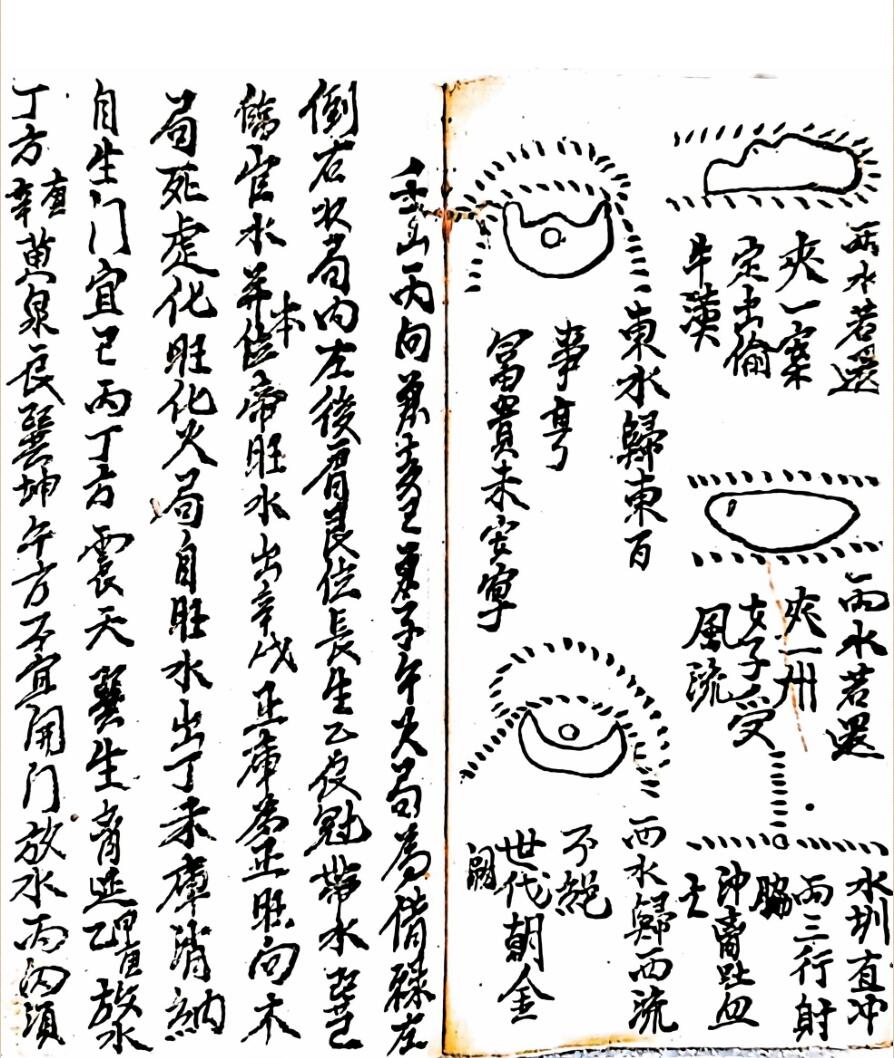 两水若還
夾一案
定出偷
牛漢
兩水若還
夾一州
女子受
風流
水圳直冲
兩三行射
脇
沖雷吐血
亡
東水歸東百
事亨
冨貴未安寧
西水歸西流
不絕
世代朝金
闕
壬山丙向兼亥巳兼子午火局為借祿左
倒右水局内左後眉艮位長生乙辰冠帶水巽巳
臨官水并本位帝旺水出辛戌正庫為正旺向木
局死處化旺化火局自旺水出丁未庫消納
自生门宜巳丙丁方震天巽生延乙甲庚放水
丁方庚辛黄泉艮巽坤午方不宜開门放水丙